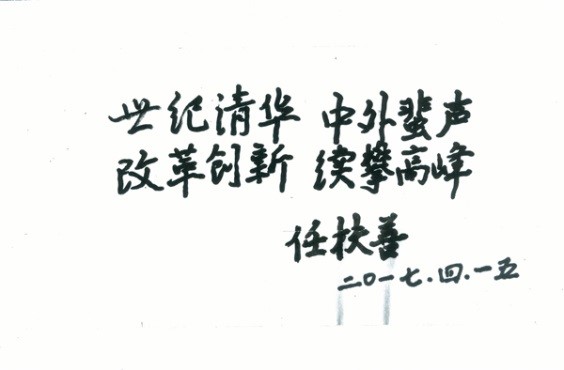 世纪清华 中外蜚声
改革创新 续攀高峰
任扶善
二〇一七.四.一五